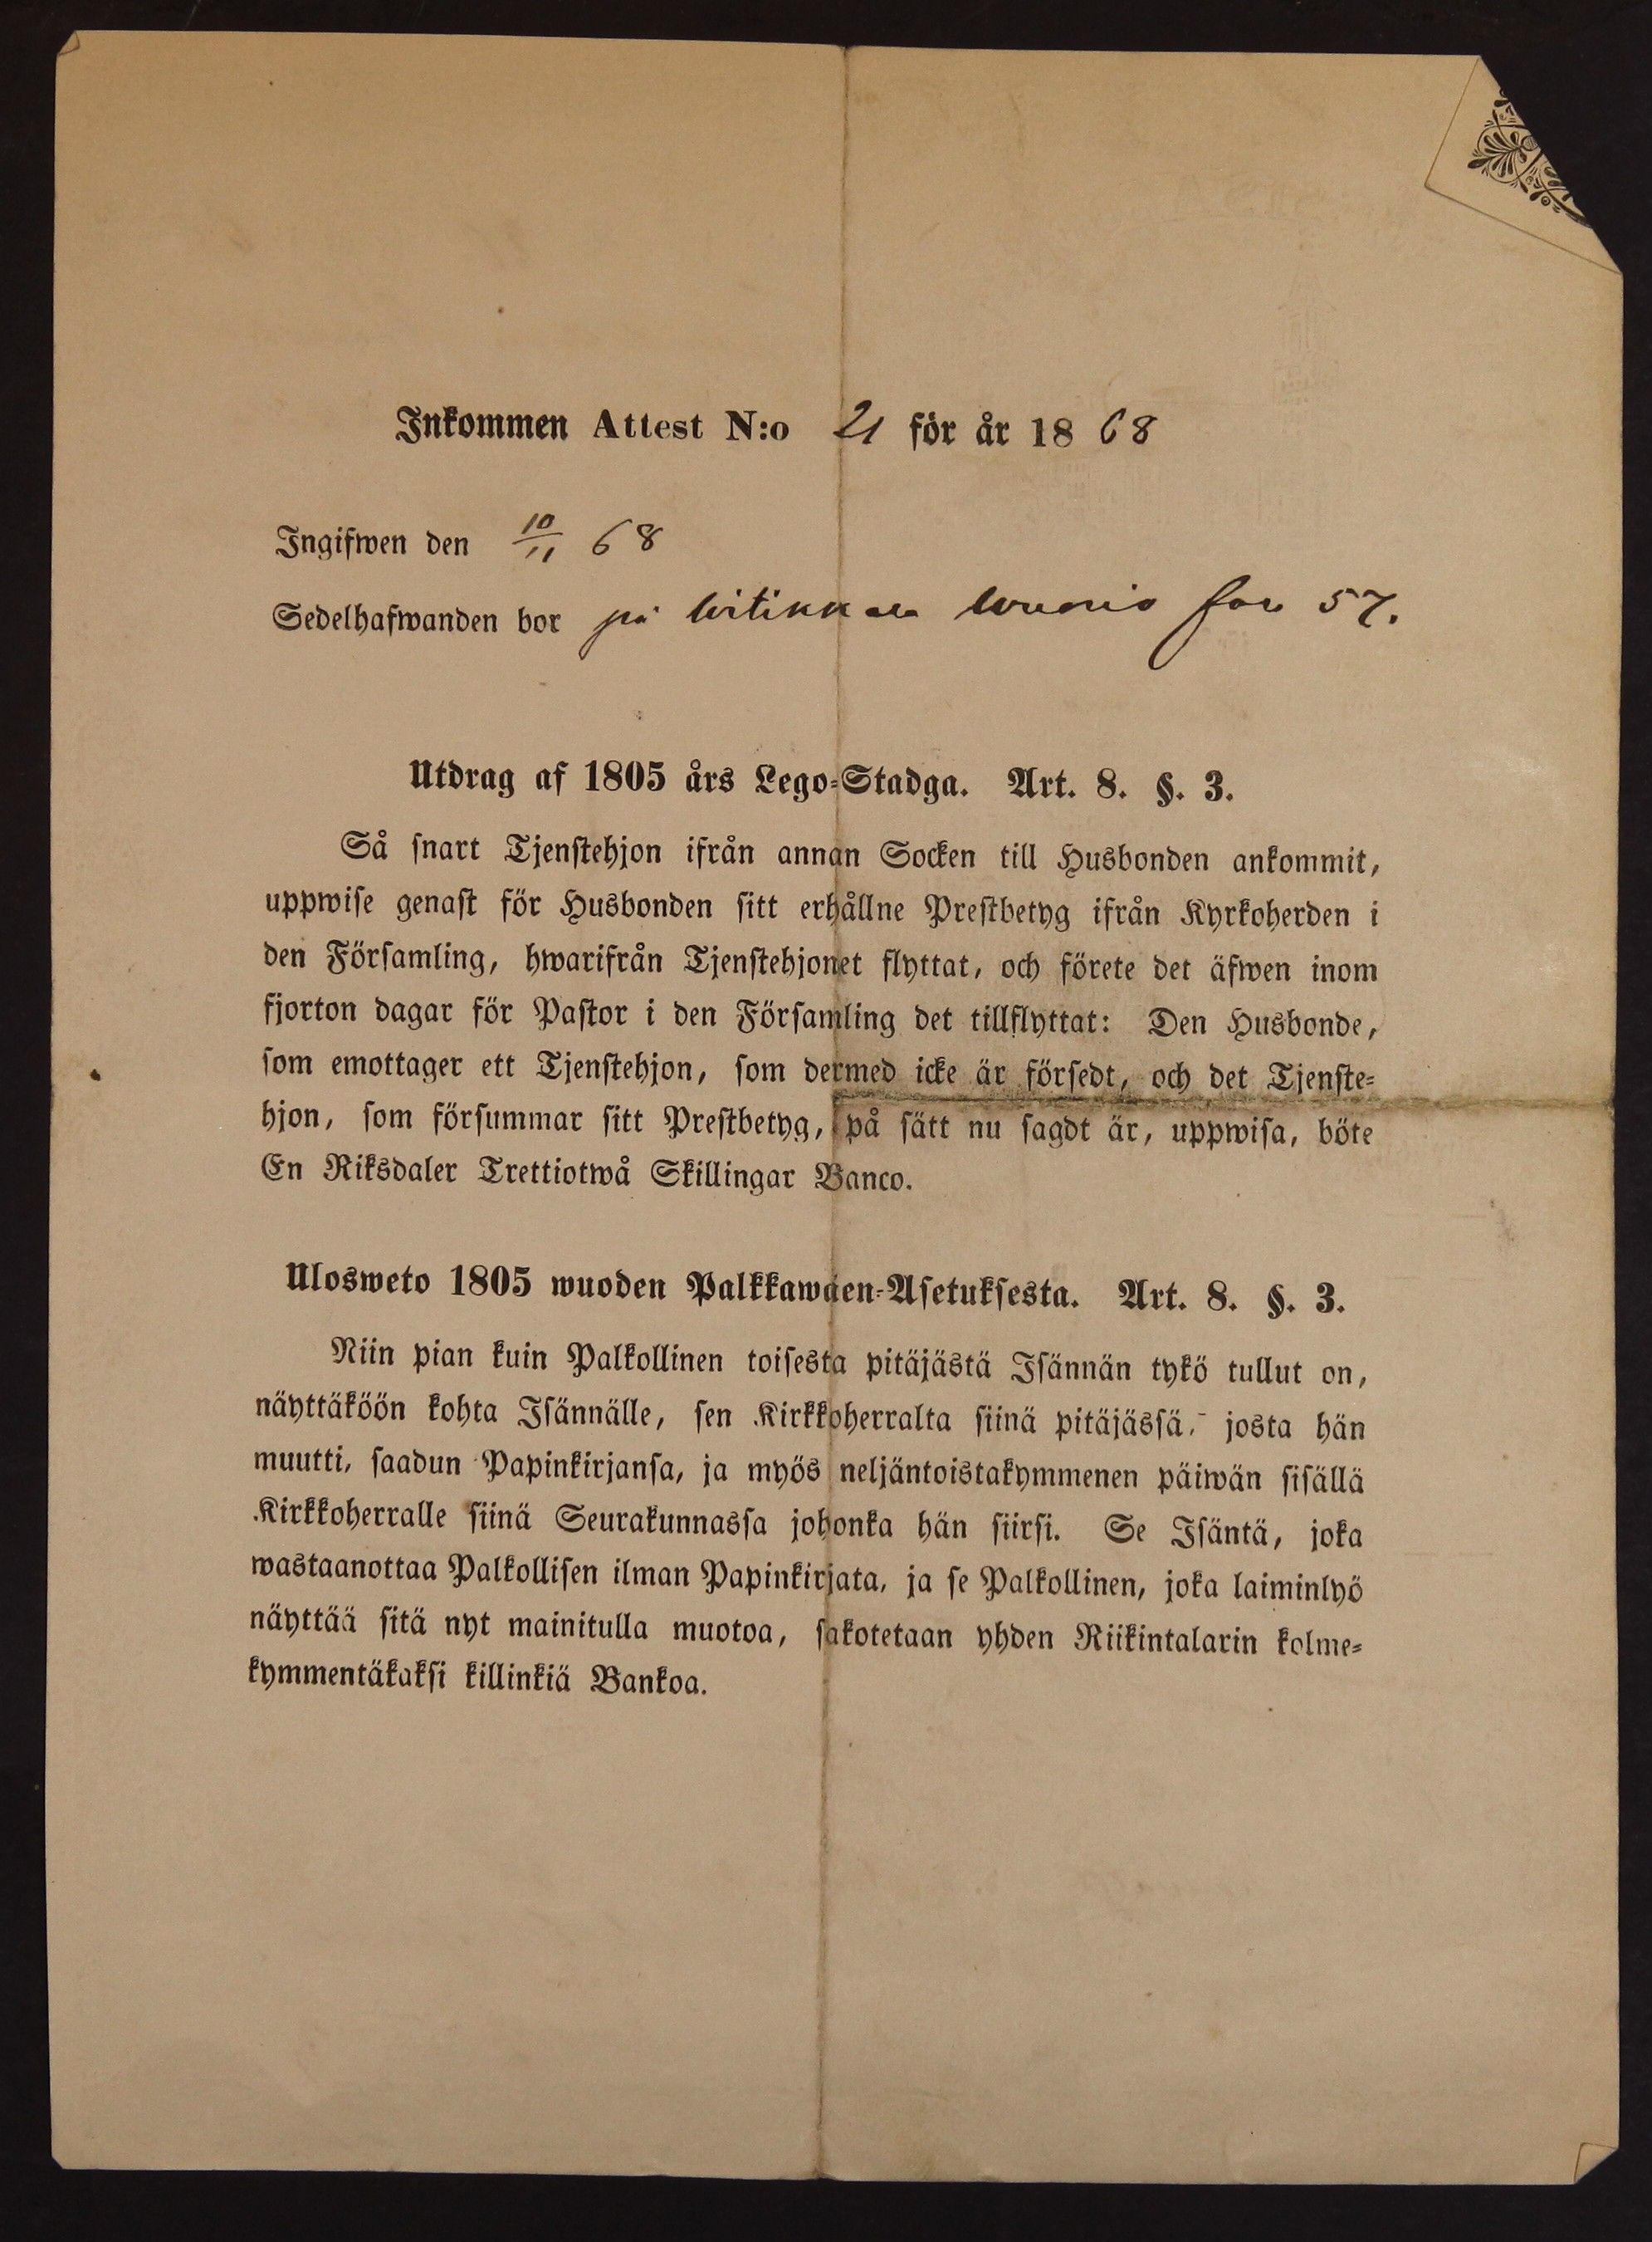 Inkommen Attest N:o 21 för år 1868
Ingifwen den 10/11 68
Sedelhafwanden bor på Witikkala 57.
Utdrag af 1805 års Lego-Stadga. Art. 8. §. 3.
Så snart Tjenstehjon ifrån annan Socken till Husbonden ankommit,
uppwise genast för Husbonden sitt erhållne Prestbetyg ifrån Kyrkoherden i
den Församling, hwarifrån Tjenstehjonet flyttat, och förete det äfwen inom
fjorton dagar för Pastor i den Församling det tillflyttat: Den Husbonde,
som emottager ett Tjenstehjon, som dermed icke är försedt, och det Tjenste-
hjon, som försummar sitt Prestbetyg, på sätt nu sagdt är, uppwisa, böte
En Riksdaler Trettiotwå Skillingar Banco.
Ulosweto 1805 wuoden Palkkawäen-Asetuksesta. Art. 8. §. 3.
Niin pian kuin Palkollinen toisesta pitäjästä Isännän tykö tullut on,
näyttäköön kohta Isännälle, sen Kirkkoherralta siinä pitäjässä, josta hän
muutti, saadun Papinkirjansa, ja myös neljäntoistakymmenen päiwän sisällä
Kirkkoherralle siinä Seurakunnassa johonka hän siirsi. Se Isäntä, joka
wastaanottaa Palkollisen ilman Papinkirjata, ja se Palkollinen, joka laiminlyö
näyttää sitä nyt mainitulla muotoa, sakotetaan yhden Riikintalarin kolme-
kymmentäkaksi killinkiä Bankoa.